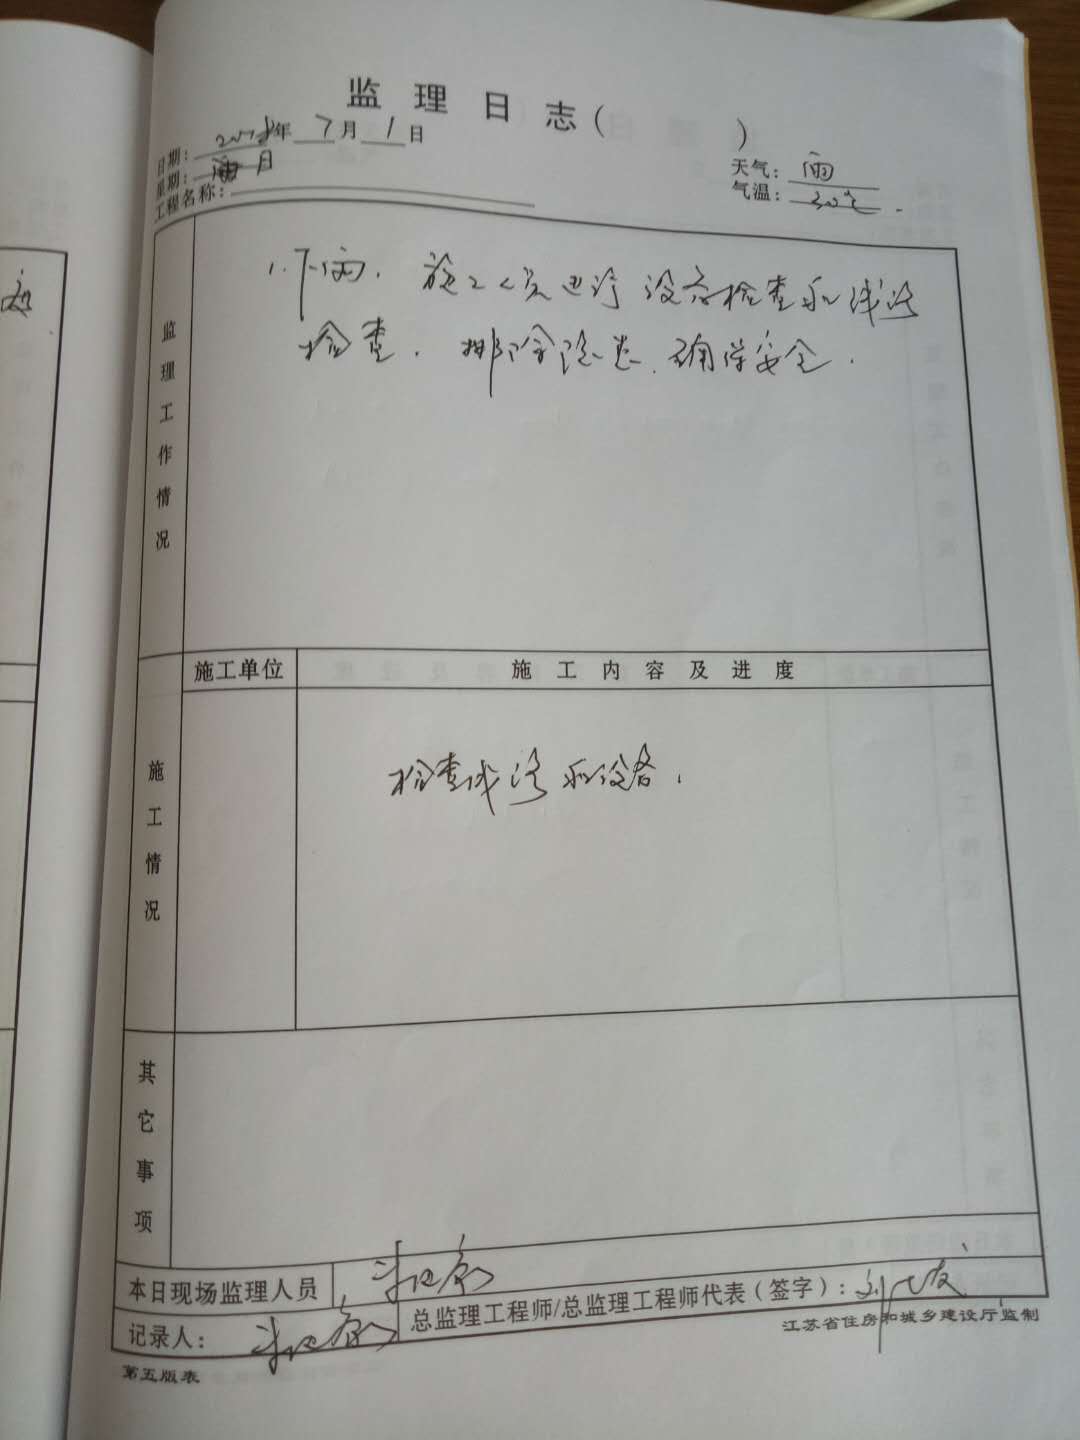 监理日志（ ）
日期：2018年7月1日
星期：日
工程名称：
天气：雨
气温：30℃.
监理工作情况
1.下雨，施工人员进行设备检查和线路
检查．排除隐患．确保安全．
施工单位 施工内容及进度
施工情况
检查线路和设备．
其它事项
本日现场监理人员
总监理工程师/总监理工程师代表（签字）：刘
记录人：
江苏省住房和城乡建设厅监制
第五版表